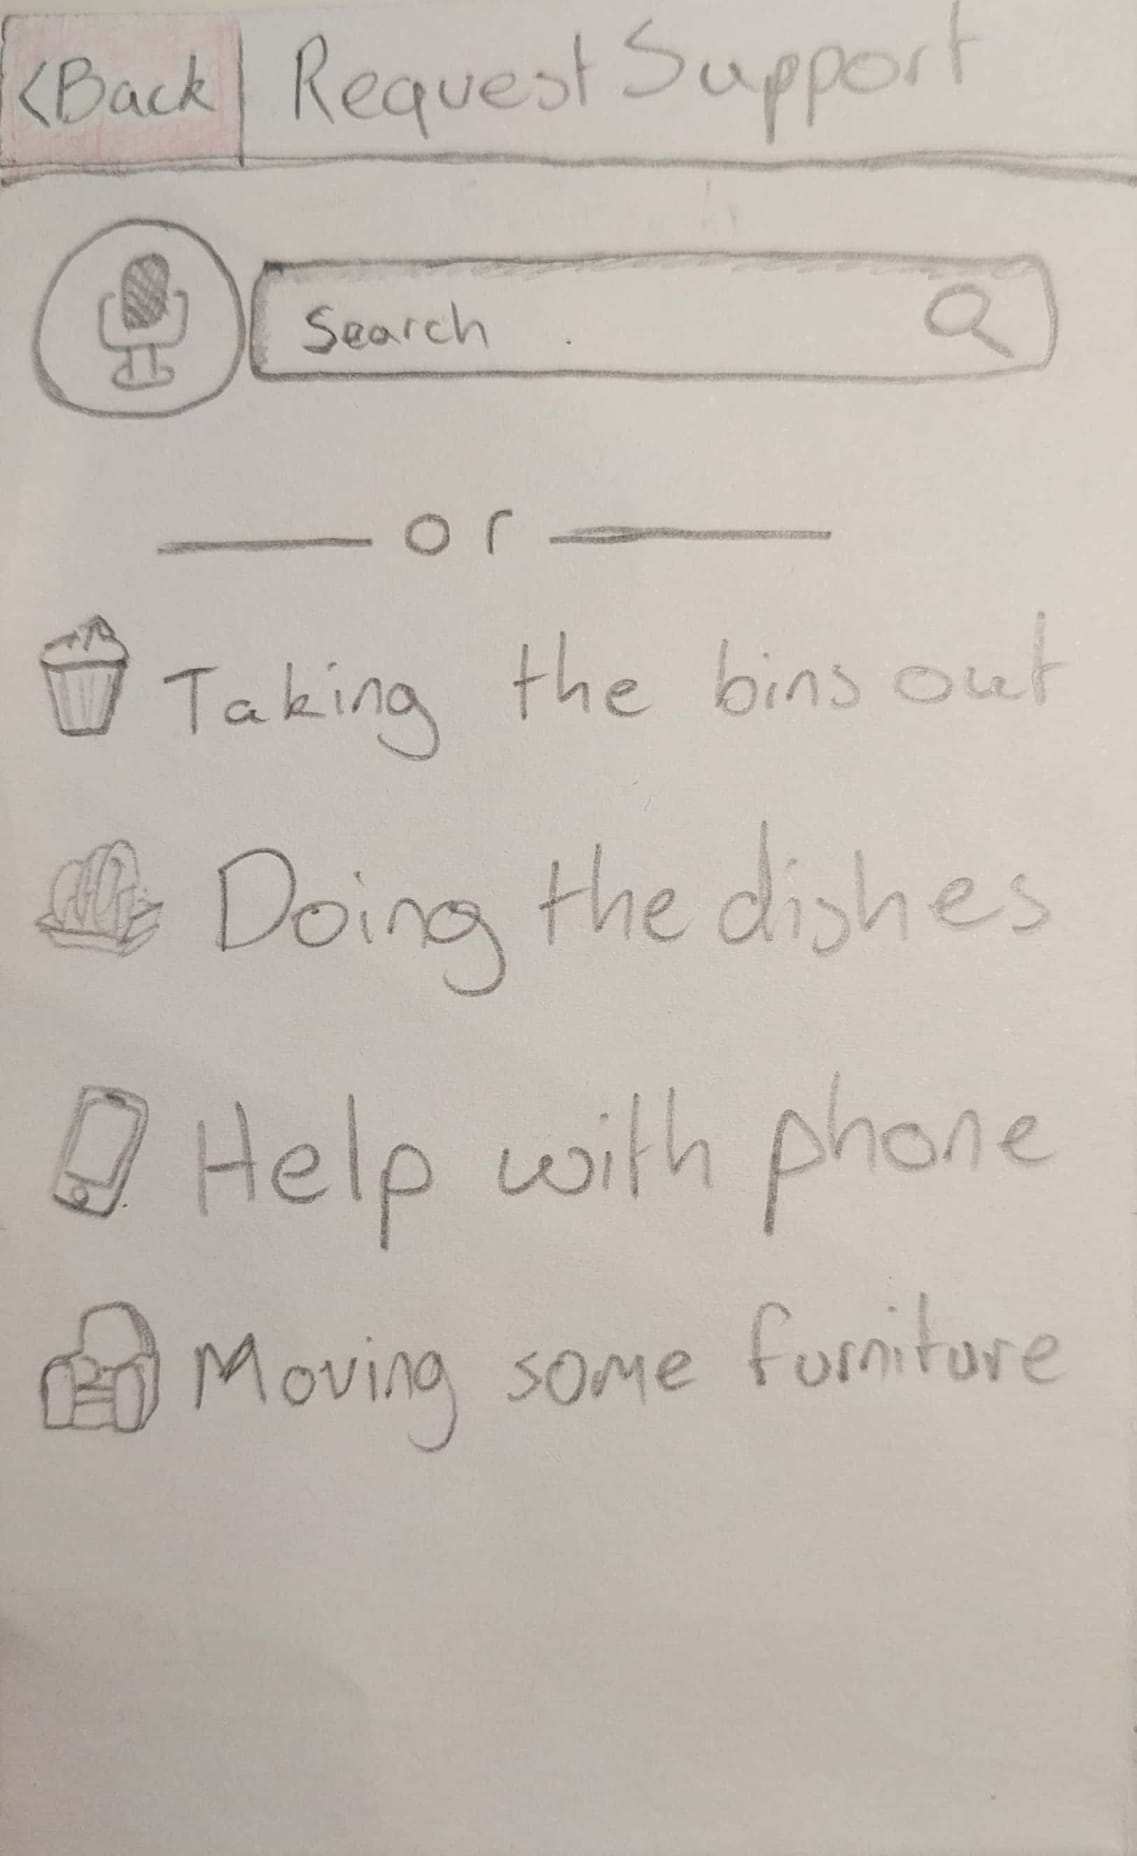 <Back Request Support
Search
or
Taking the bins out
Doing the dishes
Help with phone
Moving some furniture